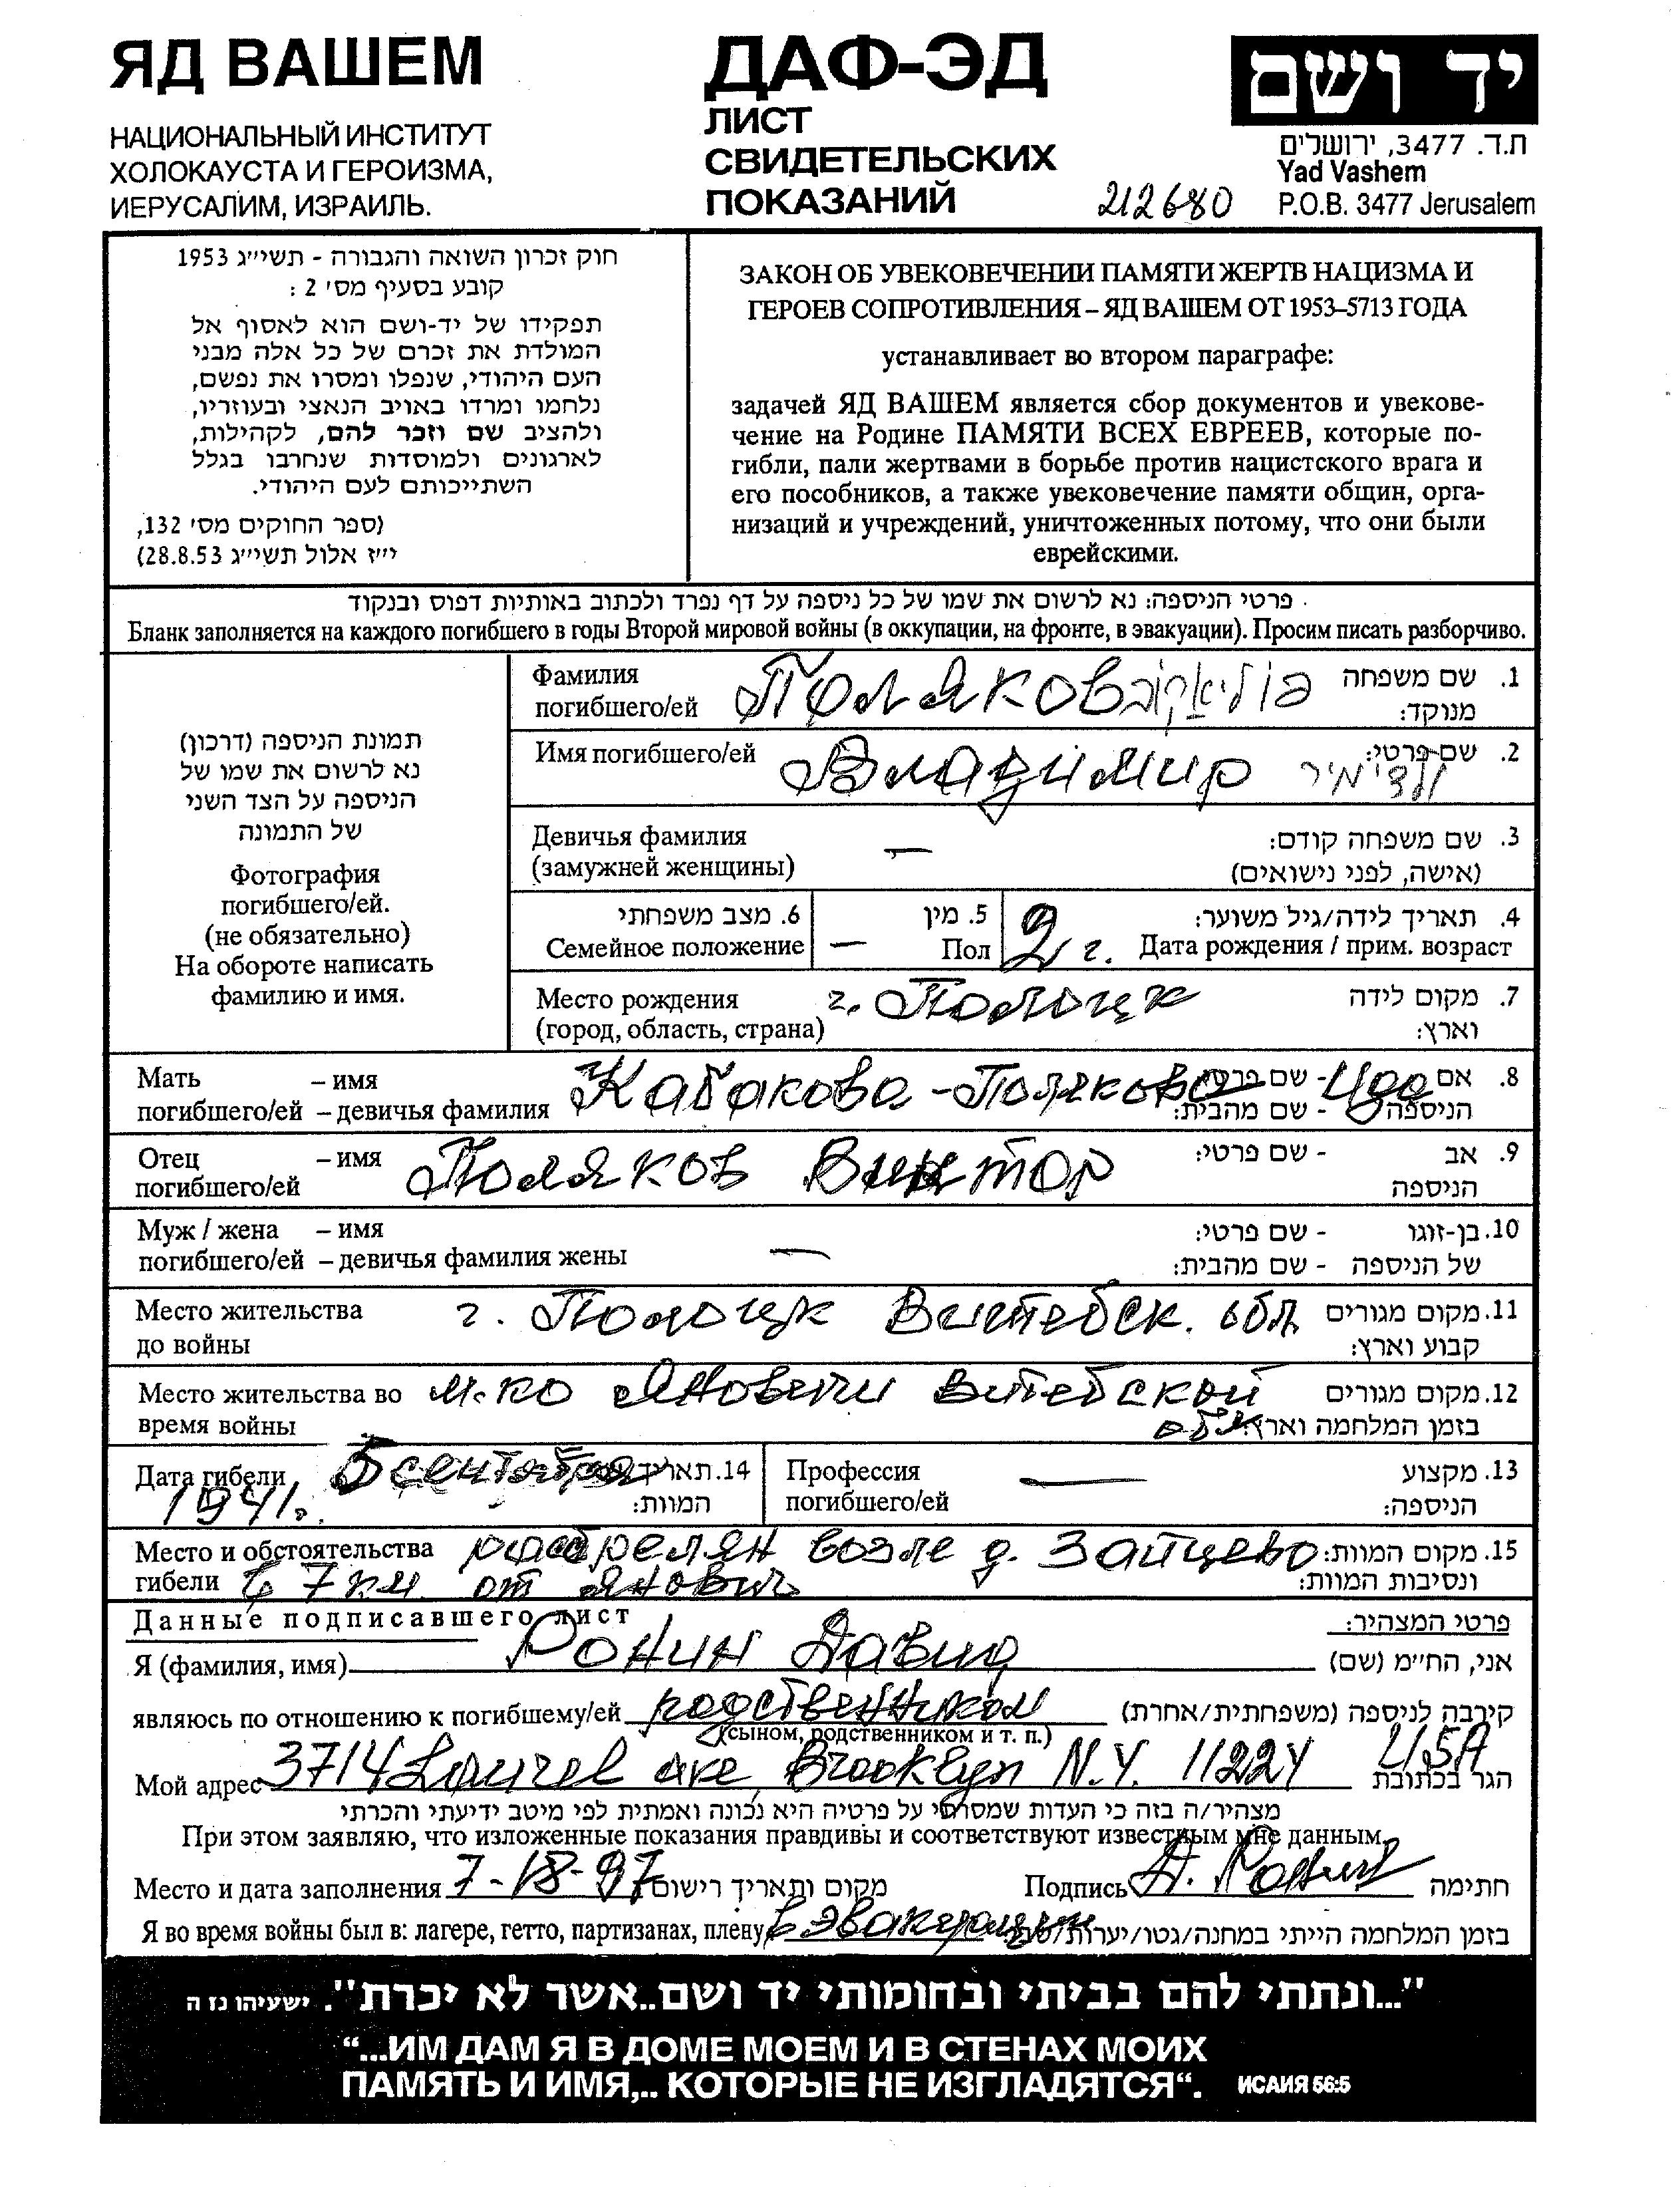 ЯД ВАШЕМ
НАЦИОНАЛЬНЫЙ ИНСТИТУТ
ХОЛОКАУСТА И ГЕРОИЗМА,
ИЕРУСАЛИМ, ИЗРАИЛЬ.
ДАФ-ЭД
ЛИСТ
СВИДЕТЕЛЬСКИХ
ПОКАЗАНИЙ
212680
יד ושם
ת.ד. 3477, ירושלים
Yad Vashem
P.O.B. 3477 Jerusalem
חוק זכרון השואה והגבורה - תשי״ג 1953
קובע בסעיף מס׳ 2 :
תפקידו של יד-ושם הוא לאסוף אל
המולדת את זכרם של כל אלה מבני
העם היהודי, שנפלו ומסרו את נפשם,
נלחמו ומרדו באויב הנאצי ובעוזריו,
ולהציב שם וזכר להם, לקהילות,
לארגונים ולמוסדות שנחרבו בגלל
השתייכותם לעם היהודי.
(ספר החוקים מס׳ 132,
י״ז אלול תשי״ג 28.8.53)
ЗАКОН ОБ УВЕКОВЕЧЕНИИ ПАМЯТИ ЖЕРТВ НАЦИЗМА И
ГЕРОЕВ СОПРОТИВЛЕНИЯ – ЯД ВАШЕМ ОТ 1953–5713 ГОДА
устанавливает во втором параграфе:
задачей ЯД ВАШЕМ является сбор документов и увекове-
чение на Родине ПАМЯТИ ВСЕХ ЕВРЕЕВ, которые по-
гибли, пали жертвами в борьбе против нацистского врага и
его пособников, а также увековечение памяти общин, орга-
низаций и учреждений, уничтоженных потому, что они были
еврейскими.
פרטי הניספה: נא לרשום את שמו של כל ניספה על דף נפרד ולכתוב באותיות דפוס ובנקוד
Бланк заполняется на каждого погибшего в годы Второй мировой войны (в оккупации, на фронте, в эвакуации). Просим писать разборчиво.
תמונת הניספה (דרכון)
נא לרשום את שמו של
הניספה על הצד השני
של התמונה
Фотография
погибшего/ей.
(не обязательно)
На обороте написать
фамилию и имя.
Фамилия Поляков פוליאקוב 1. שם משפחה
погибшего/ей מנוקד:
Имя погибшего/ей Владимир ולדימיר 2. שם פרטי:
Девичья фамилия — 3. שם משפחה קודם:
(замужней женщины) (אישה, לפני נישואים)
6. מצב משפחתי 5. מין 4. תאריך לידה/גיל משוער:
Семейное положение — Пол 2 г. Дата рождения / прим. возраст
Место рождения г. Полоцк 7. מקום לידה
(город, область, страна) וארץ:
Мать – имя Кабакова-Полякова Ида 8. אם - שם פרטי:
погибшего/ей – девичья фамилия הניספה - שם מהבית:
Отец – имя Поляков Виктор 9. אב - שם פרטי:
погибшего/ей הניספה
Муж / жена – имя 10. בן-זוגו - שם פרטי:
погибшего/ей – девичья фамилия жены — של הניספה - שם מהבית:
Место жительства г. Полоцк Витебск. обл. 11. מקום מגורים
до войны קבוע וארץ:
Место жительства во м-ко Яновичи Витебской 12. מקום מגורים
время войны обл. בזמן המלחמה וארץ:
Дата гибели 5 сентября 14. תאריך Профессия — 13. מקצוע
1941г. המוות: погибшего/ей הניספה:
Место и обстоятельства расстрелян возле д. Зайцево 15. מקום המוות:
гибели в 7 км от Янович ונסיבות המוות:
Данные подписавшего лист פרטי המצהיר:
Я (фамилия, имя) Ронин Давид אני, הח״מ (שם)
являюсь по отношению к погибшему/ей родственником קירבה לניספה (משפחתית/אחרת)
(сыном, родственником и т. п.)
Мой адрес 3714 Laurel ave Brooklyn N.Y. 11224 USA הגר בכתובת
מצהיר/ה בזה כי העדות שמסרתי על פרטיה היא נכונה ואמתית לפי מיטב ידיעתי והכרתי
При этом заявляю, что изложенные показания правдивы и соответствуют известным мне данным.
Место и дата заполнения 7-18-97 מקום ותאריך רישום Подпись Д. Ронин חתימה
Я во время войны был в: лагере, гетто, партизанах, плену в эвакуации בזמן המלחמה הייתי במחנה/גטו/יערות/
"...ונתתי להם בביתי ובחומותי יד ושם..אשר לא יכרת". ישעיהו נז ה
“...ИМ ДАМ Я В ДОМЕ МОЕМ И В СТЕНАХ МОИХ
ПАМЯТЬ И ИМЯ,.. КОТОРЫЕ НЕ ИЗГЛАДЯТСЯ“. ИСАИЯ 56:5